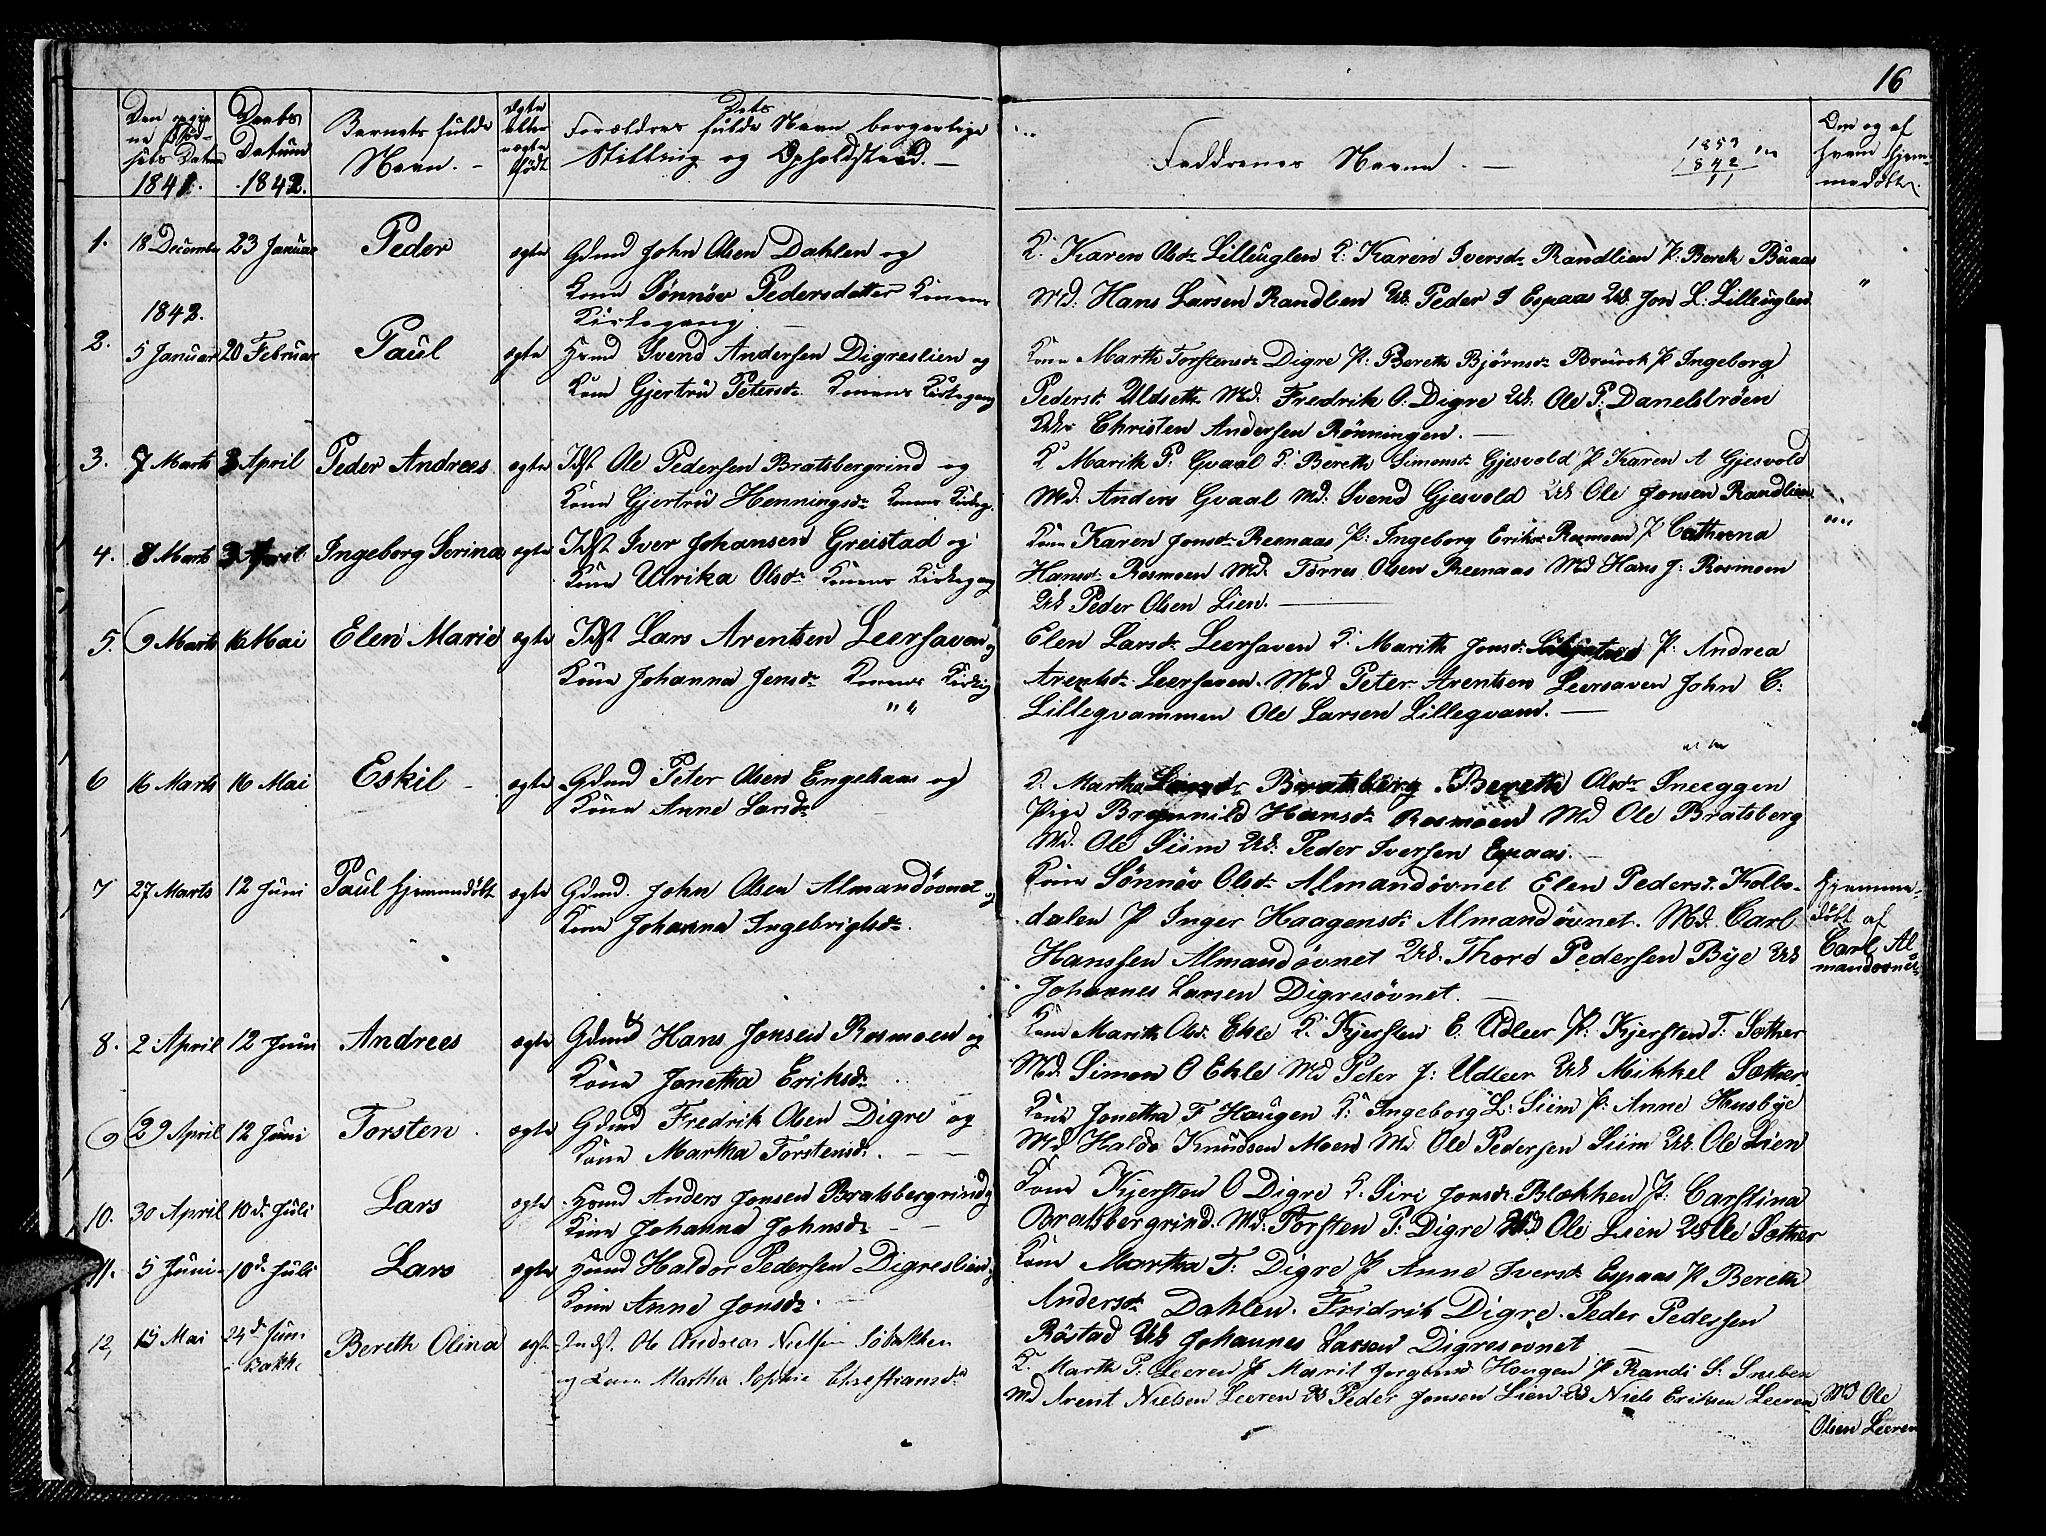 16
Den
Fød-
sels Datum
1841.
Daabs
Datum
1842.
Barnets fulde
Navn. -
ægte
eller
uægte
født
Forældres fulde Navn borgerlige
Stilling og Opholdsted. -
Faddrenes Navne. -
1853
1842
11
Om og af
hvem Hjem-
medøbt.
1. 18 Decembr 23 Januar Peder ægte Gdmd John Olsen Dahlen og
Kone Sønnøv Pedersdatter Konens
Kirkegang.
K: Karen Olsdr Lilleuglen K: Karen Iversdr Randlien P: Bereth Buaas
Md. Hans Larsen Randlien Uk. Peder I Espaas Uk. Jon L: Lilleuglen
"
1842.
2. 5 Januar 20 Februar Paul ægte Hmd Svend Andersen Digreslien og
Kone Gjertru Petersdr. Konens Kirkegang
Kone Marth Torstensdr Digre P: Bereth Bjørnsdr P Ingeborg
Pedersdr Uldseth Md. Fredrik O: Digre Uk. Ole P: Danelstrøen
Christen Andersen Rønningen. -
3. 7 Marts 3 April Peder Andreas ægte Idst Ole Pedersen Bratsbergrind og
Kone Gjertru Henningsdr Konens Kirkeg.
K Marith P: Gvaal K: Bereth Simonsdr Gjesvold P Karen A Gjesvold
Md. Anders Gvaal Md: Svend Gjesvold Uk Ole Jonsen Randlien
4. 8 Marts 3 April Ingeborg Serina ægte Idst Iver Johansen Greistad og
Kone Ulrika Olsdr Konens Kirkegang
Kone Karen Jonsdr Reenaas P: Ingeborg Eriksdr Rosmoen P Catharina
Hansdr Rosmoen Md. Torres Olsen Reenaas Md Hans J: Rosmoen
Uk Peder Olsen Lien. -
5. 9 Marts 16 Mai Elen Marie ægte Idst Lars Arentsen Leersaven og
Kone Johanna Jensdr Konens Kirkeg
" "
Elen Larsdr Leersaven K: Marith Jonsdr P: Andrea
Arentsdr Leersaven. Md Peter Arentsen Leersaven John C:
Lillegvammen Ole Larsen Lillegvam. -
6 16 Marts 16 Mai Eskil - ægte Gdmd Peter Olsen Engelsaas og
Kone Anne Larsdr
K. Martha Bratsberg Bereth Olsdr Sneeggen
Pige Brynnild Hansdr Rosmoen Md Ole Bratsberg
Md. Ole Siim Uk. Peder Iversen Espaas. -
7 27 Marts 12 Juni Paul hjemmedøbt ægte Gdmd. John Olsen Almandøvnet og
Kone Johanna Ingebrigtsdr.
Kone Sønnøv Olsdr Almandøvnet Elen Pedersdr. Kolbo-
dalen P Inger Haagensdr Almandøvnet. Md. Carl
Hanssen Almandøvnet Uk. Thord Pedersen Bye Uk
Johannes Larsen Digresøvnet. -
Hjemme-
døbt af
Carl Al
mandøvnet
8. 2 April 12 Juni Andreas ægte Gdmd Hans Jonsen Rosmoen og
Kone Jonetha Eriksdr
Kone Marith Olsdr Ekle K. Kjersten E: Udleer P: Kjersten T: Sæther
Md. Simon O Ekle Md Peter J: Udleer Uk Mikkel Sæther
9 29 April 12 Juni Torsten. ægte Gdmd Fredrik Olsen Digre og
Kone Martha Torstensdr. - -
Kone Jonetha F Haugen K: Ingeborg L: Siim P: Anne Husbye
Md Haldo Knudsen Moen Md Ole Pedersen Siim Uk Ole Lien
10. 30 April 10de Juli Lars ægte Hsmd Anders Jonsen Bratsbergrind og
Kone Johanna Johnsdr - -
Kone Kjersten O Digre K. Siri Jonsdr Blækken P: Carstina
Bratsbergrind. Md: Torsten P: Digre Uk Ole Lien Uk Ole Sæther
11. 5 Juni 10de Juli Lars ægte Hsmd Haldor Pedersen Digreslien og
Kone Anne Jonsdr. -
Kone Martha T: Digre P Anne Iversdr Espaas P Bereth
Andersdr Dahlen. Fridrik Digre. Peder Pedersen
Røstad Uk Johannes Larsen Digresøvnet -
12, 15 Mai 24de Juni Bereth Olina ægte Indst. Ole Andreas Nielsen Løbakken
i Bakke
og Kone Martha Sophie Christiansdr
K. Marth P: Leeren P Marit Jørgensdr Haugen P Randi S: Sneben
Md Arent Nielsen Leeren Uk Peder Jonsen Lien Uk Niels Eriksen Leeren Md Ole
Olsen Leeren